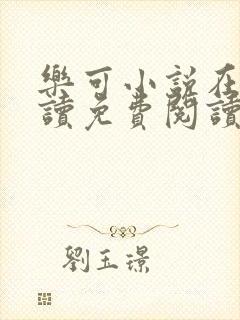 樂可小說在
讀免費閱讀
劉玉璟